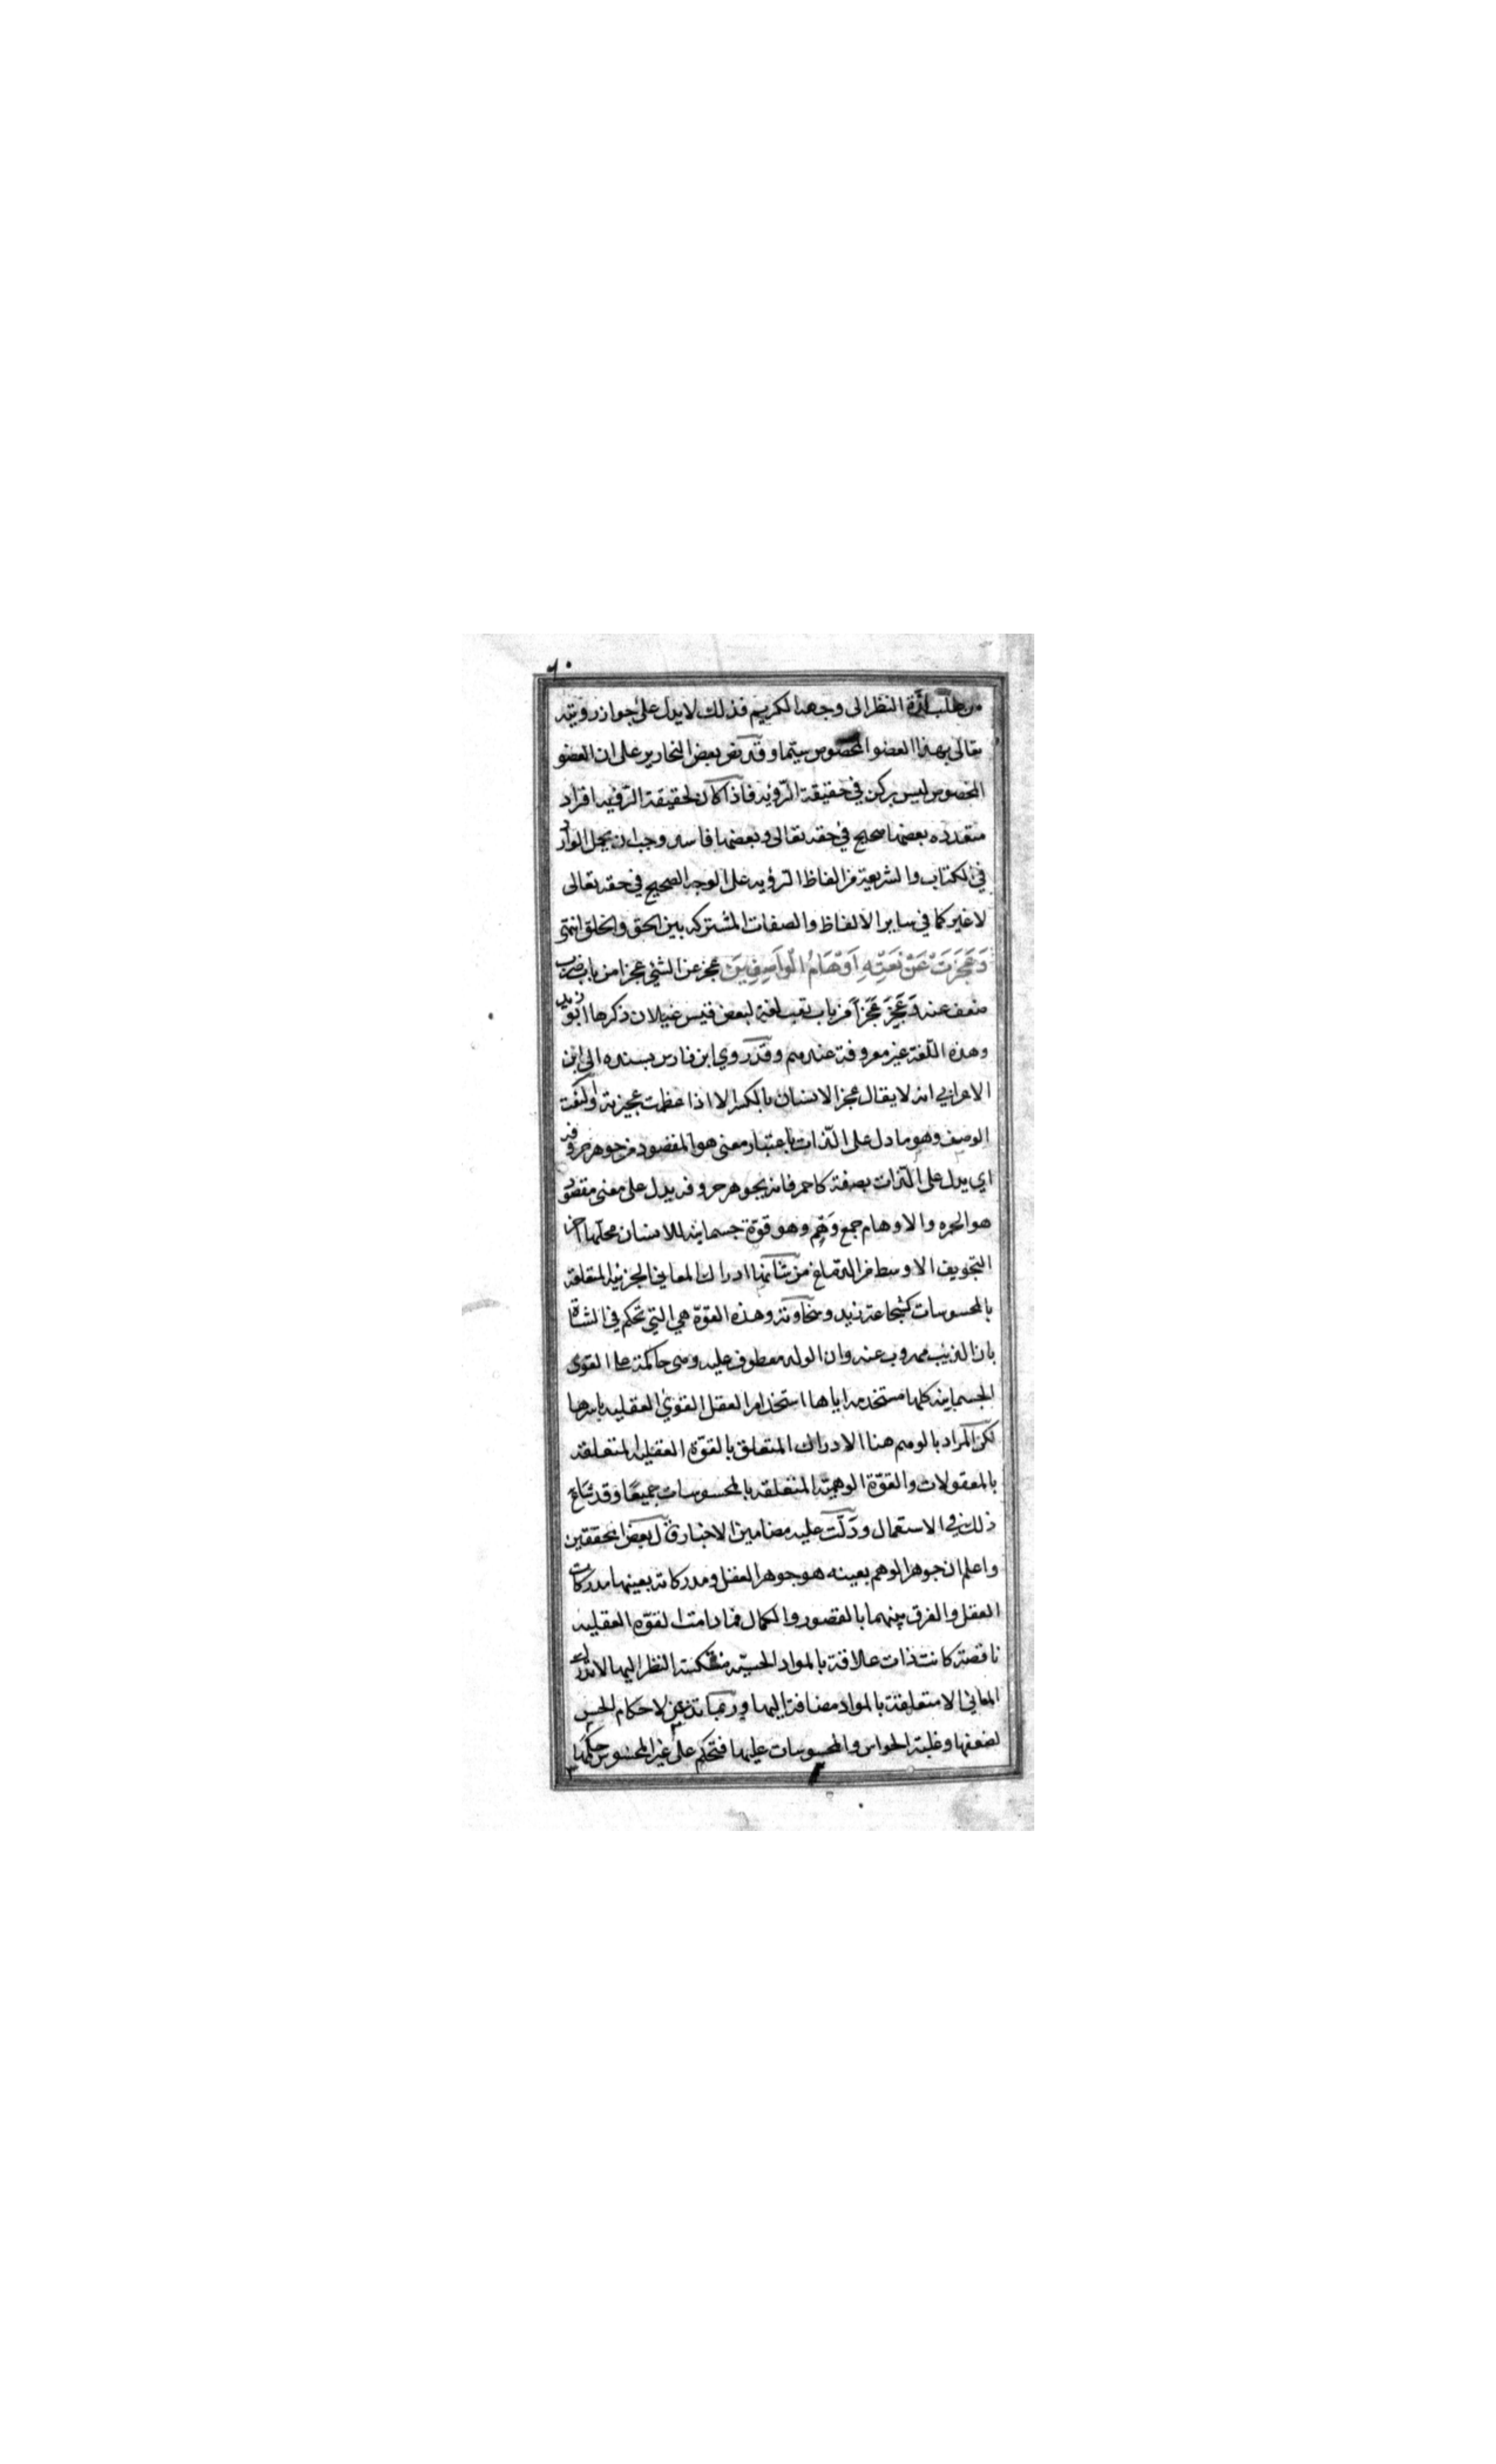 ٦٠
من طلب لذة النظر الى وجهه الكريم فذلك لا يدل على جواز رويته
تعالى بهذا العضو المخصوص سيما وقد نص بعض النحارير على ان العضو
المخصوص ليس بركن في حقيقة الرّؤيه فاذا كان لحقيقة الرّؤيه افراد
متعدده بعضها صحيح في حقه تعالى وبعضها فاسد وجب ان يحمل الوارد
في الكتاب والشريعة من الفاظ الرؤيه على الوجه الصحيح في حقه تعالى
لا غير كما في ساير الالفاظ والصفات المشتركه بين الحق والخلق انتهى
وَعَجَزَتْ عَنْ نَعْتِهِ اَوْهَامُ الْوَاصِفِينَ عجز عن الشئ عجزا من باب ضرب
ضعف عنه وَعَجِزَ عَجَزًا من باب تعب لغة لبعض قيس عيلان ذكرها ابو زيد
وهذه اللّغة غير معروفة عندهم وقد روي ابن فارس بسنده الى ابن
الاعرابي انه لا يقال عجز الانسان بالكسر الا اذا عظمت عجيزته والنعت
الوصف وهو ما دل على الذّات باعتبار معنى هو المقصود من جوهر حروفه
اي يدل على الذّات بصفة كاحمر فانه بجوهر حروفه يدل على معنى مقصود
هو الحمره والاوهام جمع وَهْم وهو قوّة جسمانيه للانسان محلّها اخر
التجويف الاوسط من الدّماغ من شانها ادراك المعاني الجزئيه المتعلقة
بالمحسوسات كشجاعة زيد وسخاوته وهذه القوّة هي التي تحكم في الشاة
بان الذئب مهروب عنه وان الولد معطوف عليه وهى حاكمة على القوى
الجسمانيه كلها مستخدمه اياها استخدام العقل القوي العقليه باسرها
لكن المراد بالوهم هنا الادراك المتعلق بالقوّة العقليه المتعلقه
بالمعقولات والقوّة الوهميّه المتعلقه بالمحسوسات جميعًا وقد شاع
ذلك في الاستعمال ودلّت عليه مضامين الاخبار قال بعض المحققين
واعلم ان جوهر الوهم بعينه هو جوهر العقل ومدركاته بعينها مدركات
العقل والفرق بينهما بالقصور والكمال فما دامت القوّه العقليه
ناقصة كانت ذات علاقة بالمواد الحسيّه منتكسة النظر اليها لا تدرك
المعاني الا متعلقة بالمواد مضافة اليها وربما تذعن لاحكام الحس
لضعفها وغلبة الحواس والمحسوسات عليها فتحكم على غير المحسوس حكمها